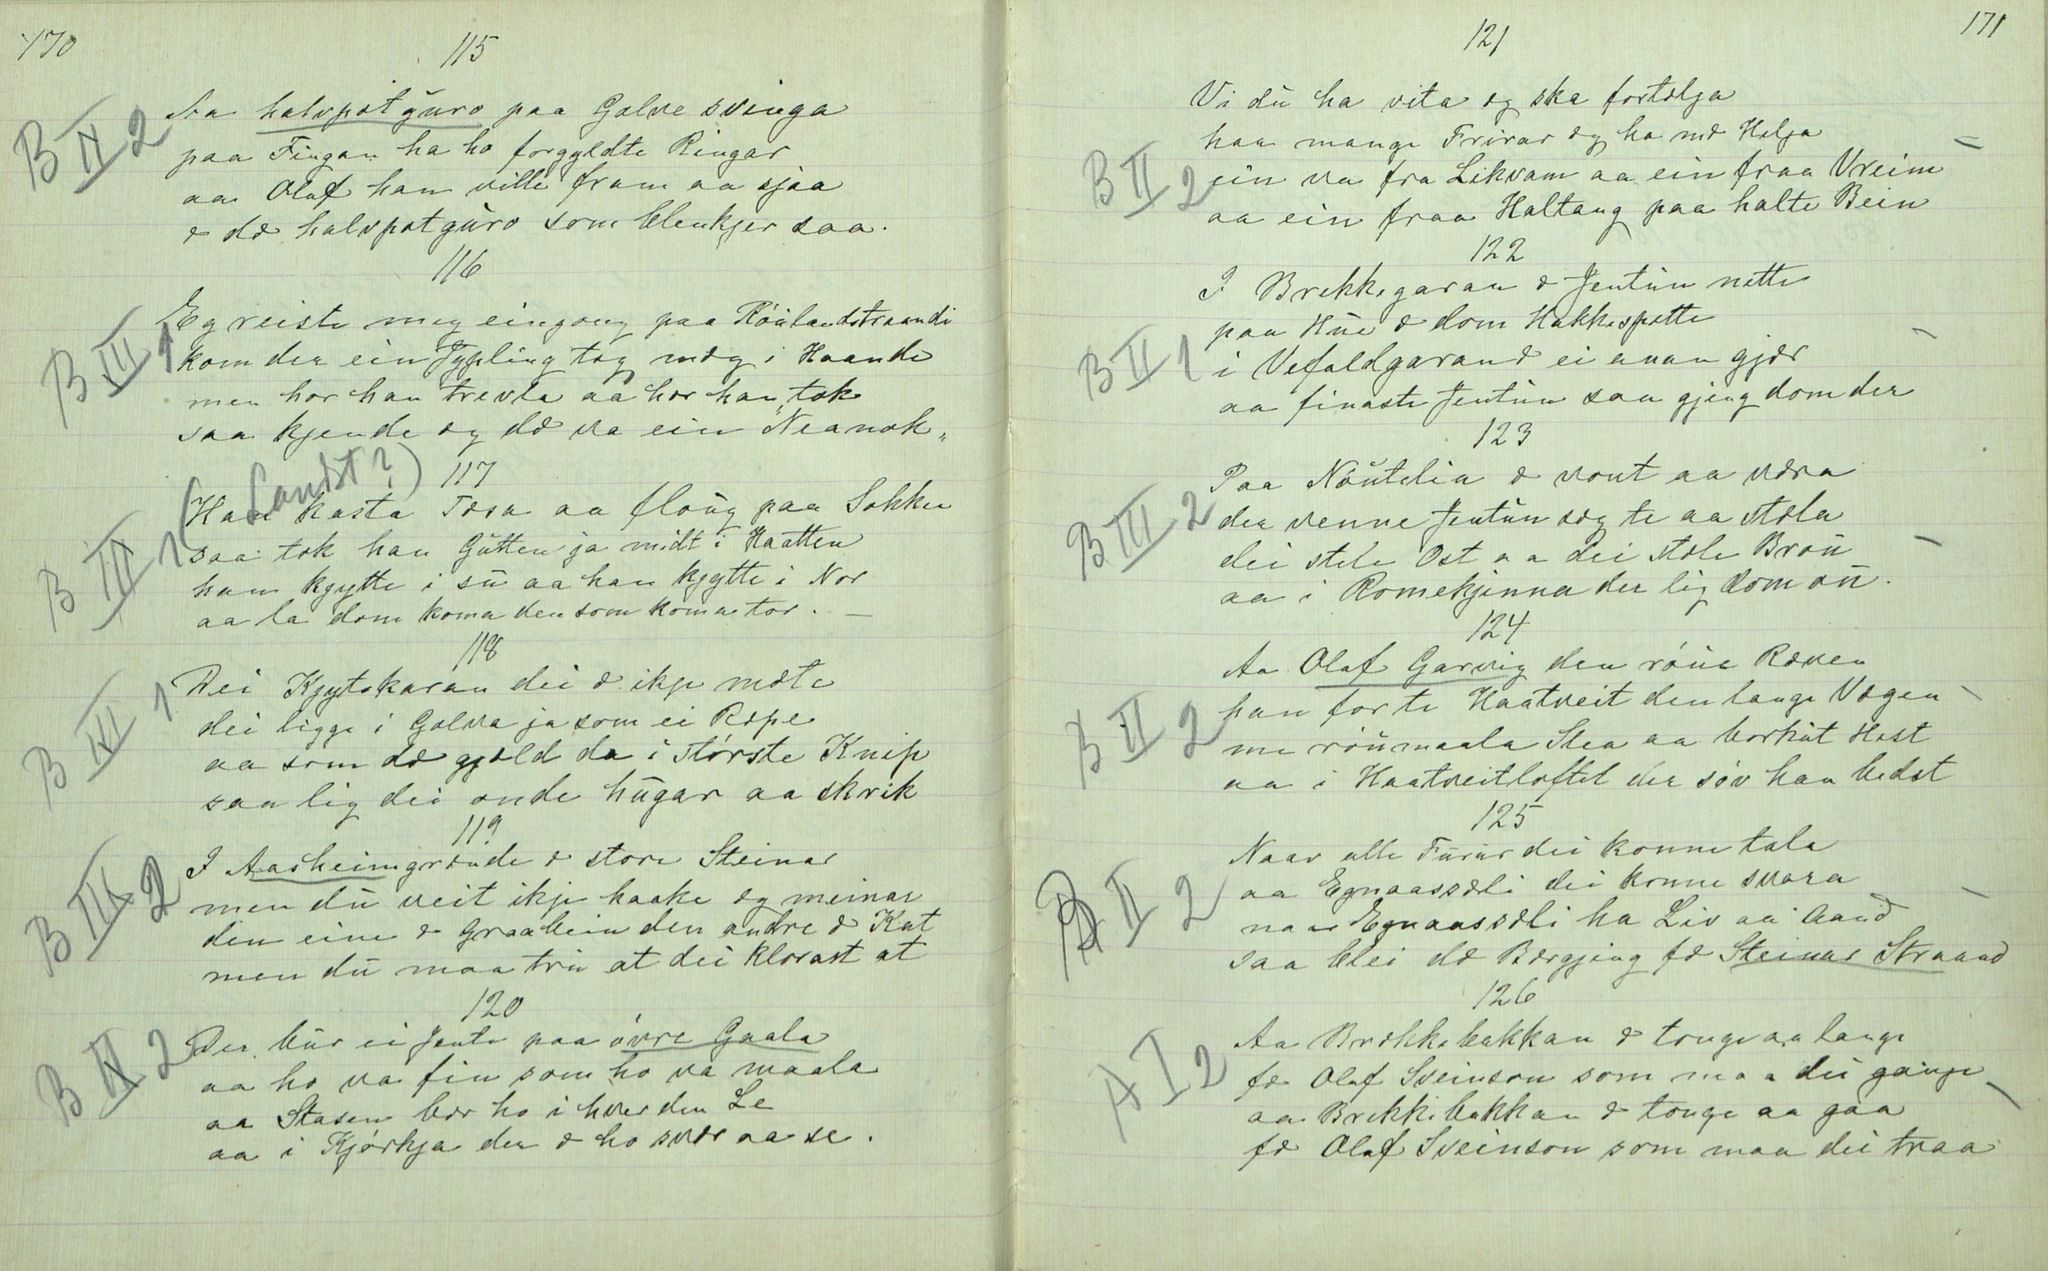 170
115
B II 2
Aa halvpotguro paa Golve svinga
paa Fingan ha ho forgyldte Ringar
aa Olaf han ville fram aa sjaa
æ dæ halvpotguro som blenkjer saa.
116
B III 1
Eg reiste meg eingong paa Róalandstraandi
kom der ein Jypling tog mæg i Haande
men hor han trevla aa hor han tok
saa kjende eg dæ va ein „Neanok„
(Landst?)
117
B III 1
Han kasta Tæra aa floug paa Sokken
saa tok han Gutten ja midt i Haatten
han kgytte i su aa han kjytte i Nor
aa la dom koma den som koma tor. —
118
B VI 1
Dei Kjytakaran dei æ ikje mæte
dei ligge i Golva ja som ei Ræpe
aa som dæ gjæld da i störste Knip
saa lig dei onde hugar aa skrik
119
B III 2
I Aasheimgrænde æ store Steinar
men du veit ikje haake eg meinar
din eine æ Graabein den andre æ Kat
men du maa tru at dei klorast at
120
B II 2
Der bur ei Jente paa óvre Gaala
aa ho va fin som ho va maala
aa Stasen bær ho i hver den Le
aa i Kjórkja der æ ho svær aa se.
171
121
Vi du ha vita eg ska fortælja
haa mange Frirar eg ha mæ Helja
B II 2
ein va fra Likvam aa ein fraa Vreim
aa ein fraa Haltang paa halte Bein
122
I Brekkegaran æ Jentun nette
paa Hue æ dom Hakkespette
B II 1
i Vefaldgarand ei anan gjær
aa finaste Jentun saa gjeng dom der
123
Paa Nóutelia æ vont aa væra
B III 2
der venne Jentun sæg te aa stæla
dei stele Ost aa dei stæle Brou
aa i Romekjinna der lig dom ou.
124
Aa Olaf Garvig den róue Ræven
han for te Haatveit den lange Vægen
B II 2
me róumaala Slea aa borkut Hest
aa i Haatveitloftet der sóv han bedst
125
Naar alle Furur dei konne tala
B II 2
aa Egnaassæli dei konne svara
naar Egnaassæli ha Liv aa Aand
saa blei dæ Bærgjing fæ Steinar Straand
126
Aa Brækkebakkan æ tonge aa lange
A I 2
fæ Olaf Sveinson som maa dei gange
aa Brekkebakkan æ tonge aa gaa
fæ Olaf Sveinson som maa dei traa